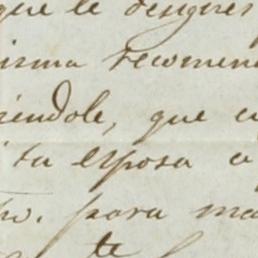 que le designes
isma recomen
iendole, que c
i tu esposa a
para ma
te